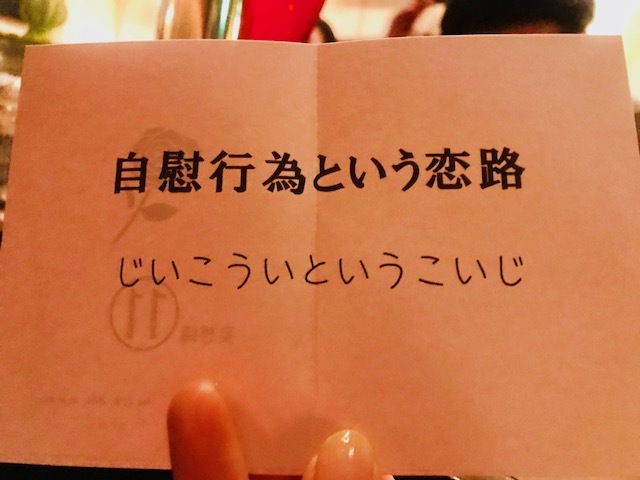 自慰行為という恋路
じいこういというこいじ
11